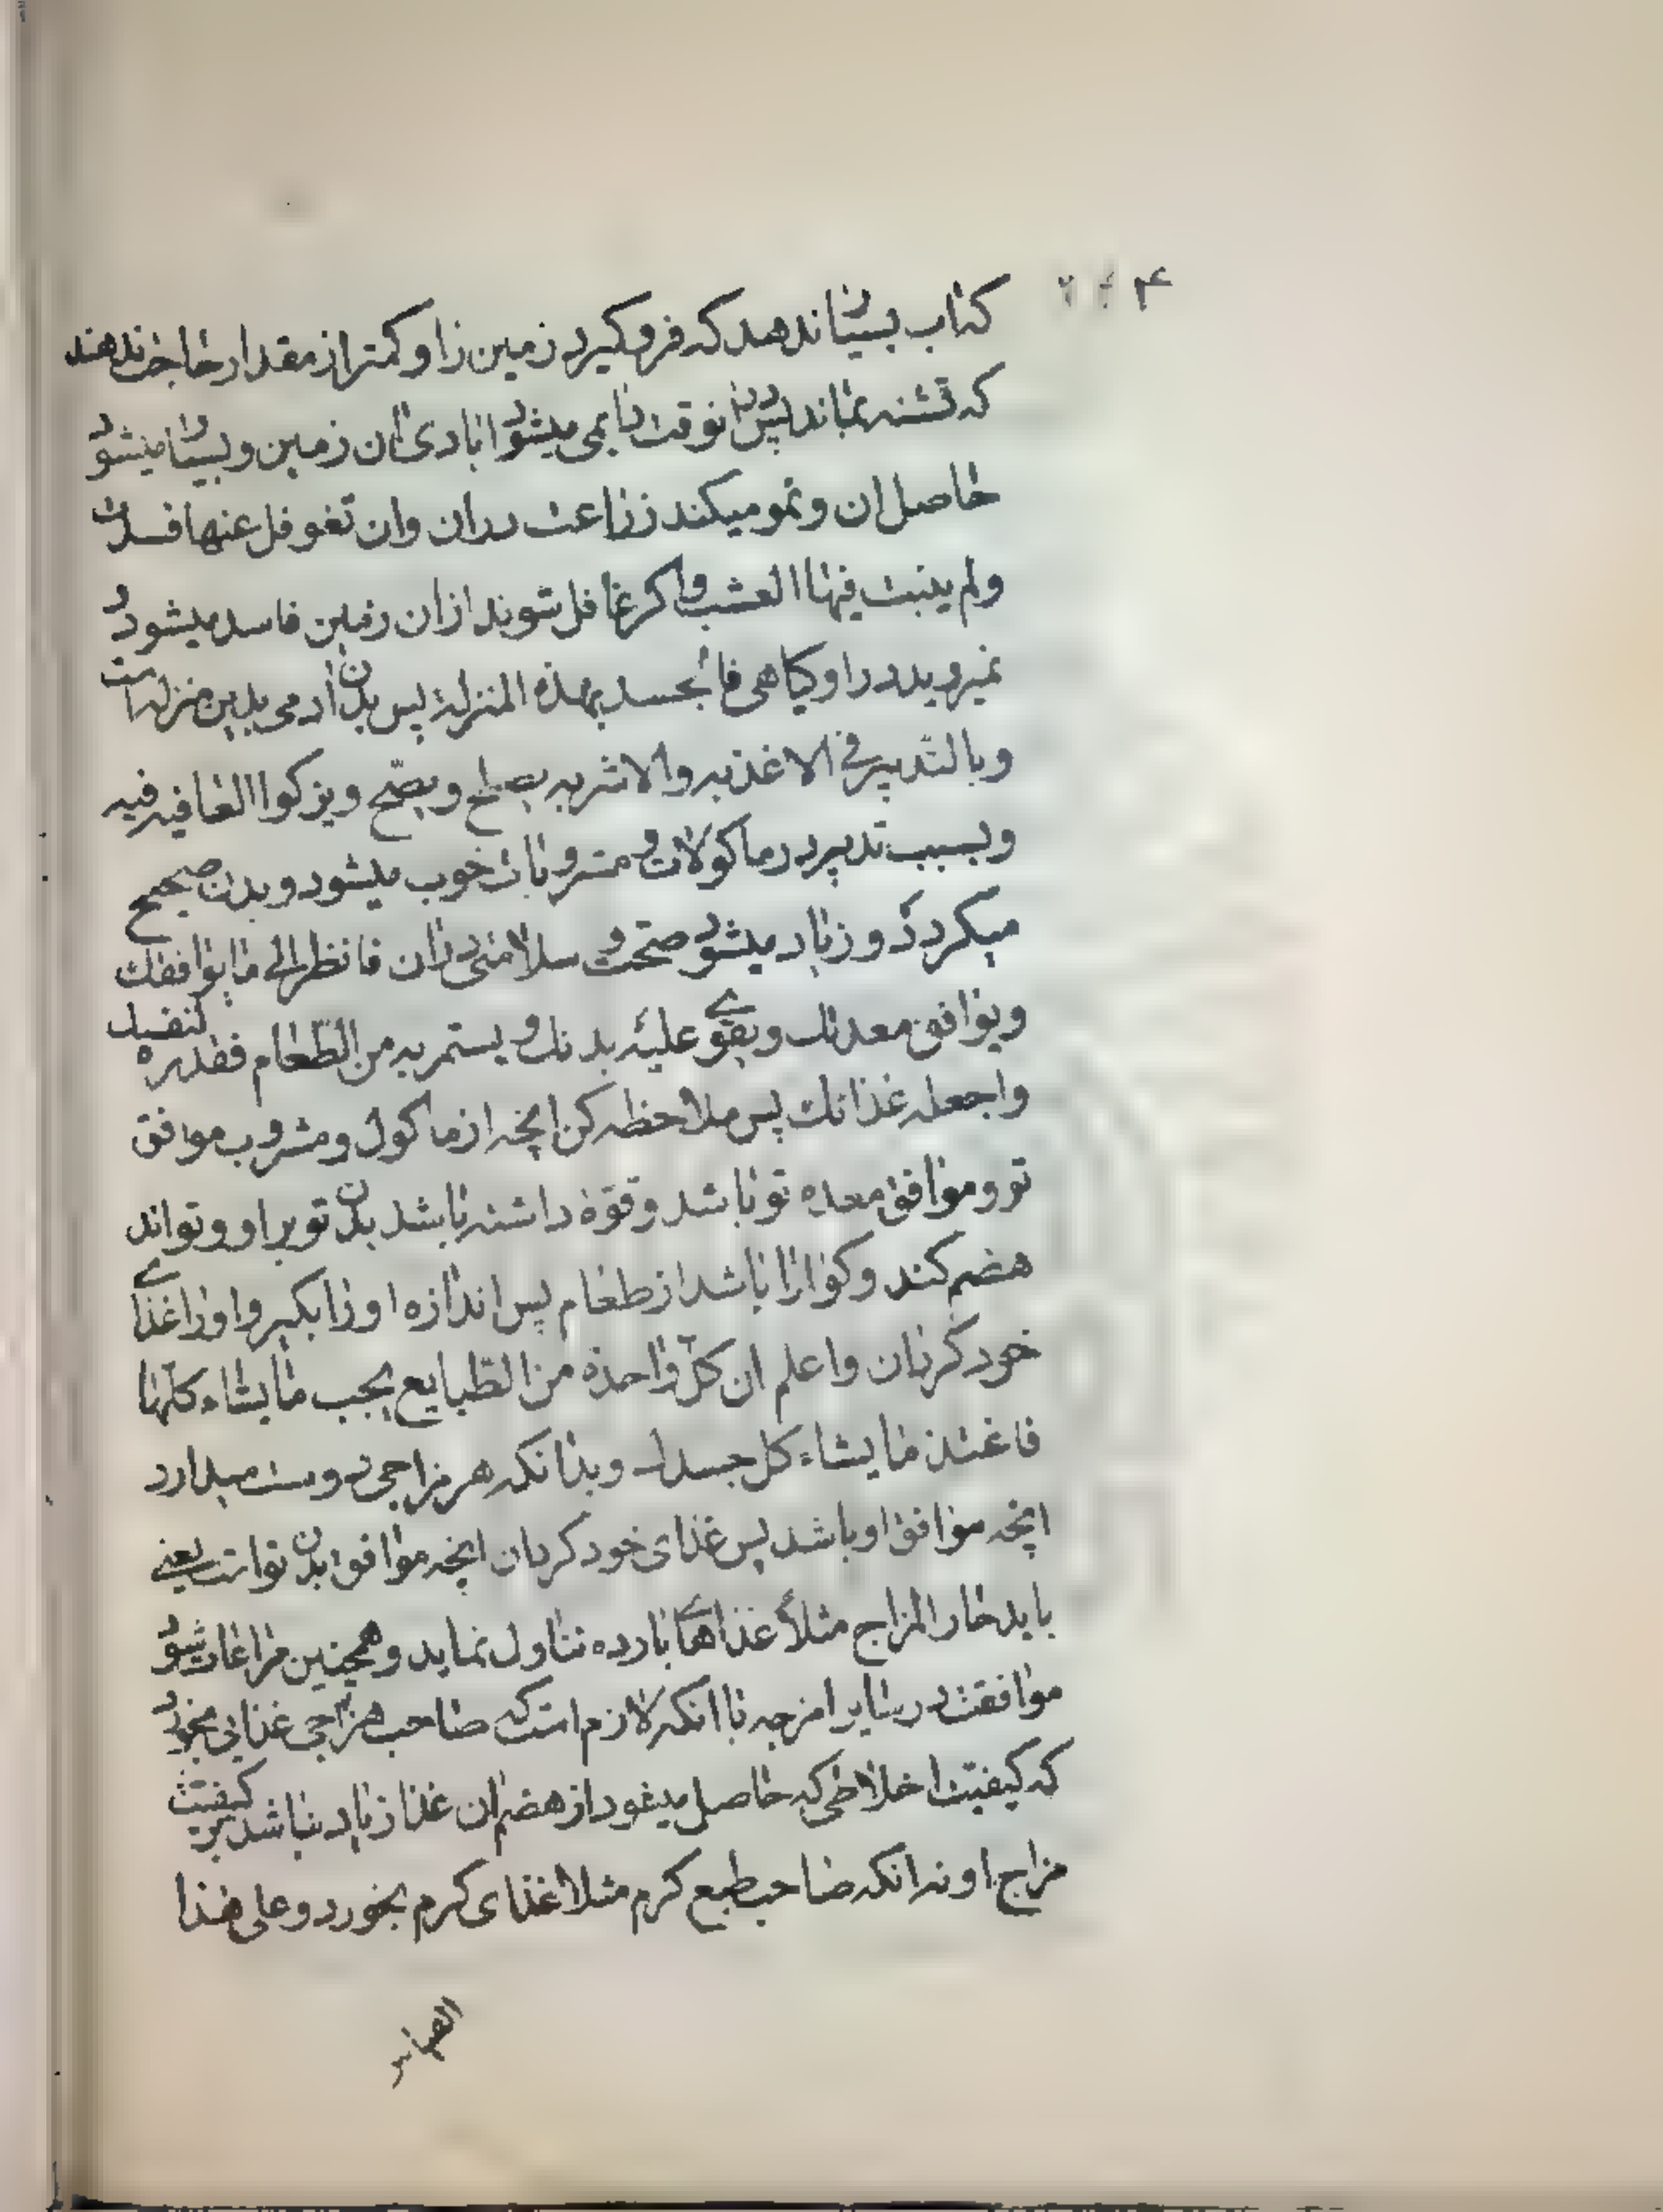 که اب بسیار ندهد که فرو گیرد زمین را و کمتر از مقدار حاجت ندهند
که تشنه بماند پس درانوقت دایمی میشود ابادی ان زمین و بسیار میشود
حاصل ان و نمو میکند زراعت دران وان تغوفل عنها فسدت
ولم ینبت فیها العشب و اکر غافل شوند ازان زمین فاسد میشود و
نمیروید در او کیاهی فالجسد بهذه المنزلة پس بدن ادمی بدین منزله است
وبالتدبیر فی الاغذیه والاشربه یصلح ویصحّ ویزکوا العافیه فیه
وبسبب تدبیر در ماکولات و مشروبات خوب میشود و بدن صحیح
میکردد و زیاد میشود صحت و سلامتی دران فانظر الی ما یوافقک
ویوافق معدتک ویقوی علیه بدنک ویستمریه من الطّعام فقدره لنفسک
واجعله غذائک پس ملاحظه کن انچه از ماکول و مشروب موافق
تو و موافق معده تو باشد و قوّة داشته باشد بدن تو براو و تواند
هضم کند و کوارا باشد از طعام پس اندازه او را بکیر و او را غذای
خود کردان واعلم ان کلّ واحدة من الطبایع یحب ما یشاء کلها
فاغتذ ما یشاء کل جسدک وبدانکه هر مزاجی دوست میدارد
انچه موافق او باشد پس غذای خود کردان انچه موافق بدن تواست یعنی
باید حار المزاج مثلاً غذاهای بارده تناول نماید و همچنین مراعات شود
موافقت در سایر امزجه با انکه لازم است که صاحب هر مزاجی غذایی بخورد
که کیفیت اخلاطی که حاصل میشود از هضم ان غذا زیاد نباشد بر کیفیت
مزاج او نه انکه صاحب طبع کرم مثلا غذای کرم بخورد و علی هذا
القیاس